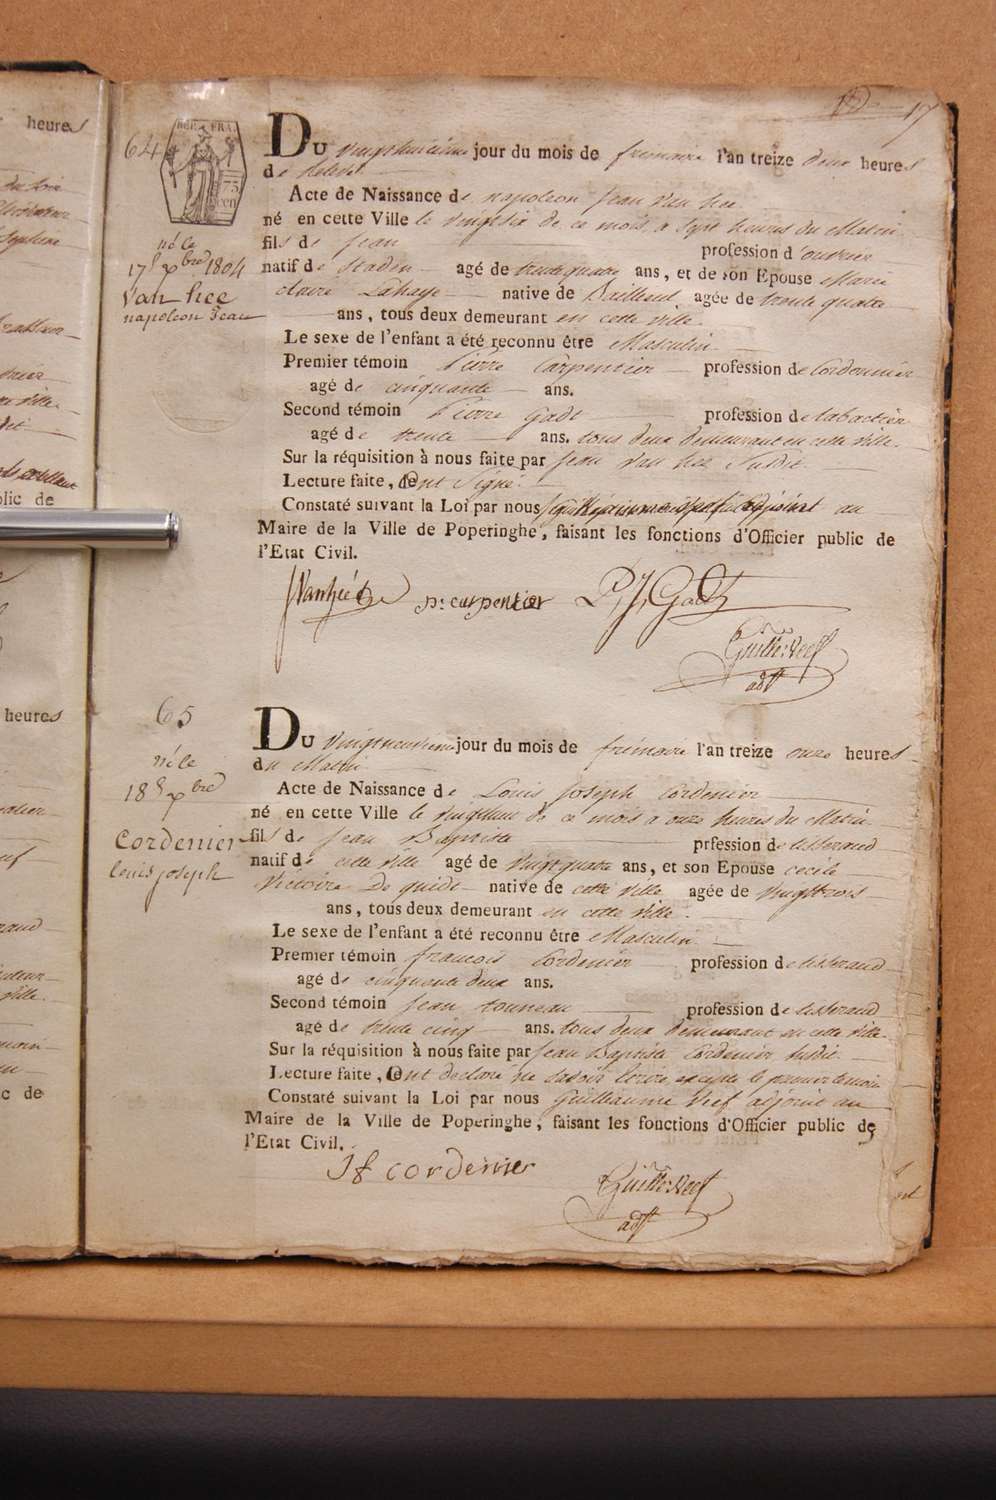 heures
du soir
blic de
heures
c de
17
64
REP. FRA.
75
cen
né le
17 xbre 1804
Van hee
napoleon Jean
DU vingthuitieme jour du mois de frimaire l'an treize deux heures
de Relevé
Acte de Naissance de napoleon Jean Van hee
né en cette Ville le vingtsix de ce mois, a sept heures du Matin
fils de Jean profession d'ouvrier
natif de Staden agé de trentequatre ans, et de son Epouse Marie
claire Lahaye native de Bailleul agée de trente quatre
ans, tous deux demeurant en cette ville.
Le sexe de l'enfant a été reconnu être Masculin
Premier témoin Pierre Carpentier profession de Cordonnier
agé de cinquante ans.
Second témoin Pierre Gadt profession de tabactier
agé de trente ans. tous deux demeurant en cette ville.
Sur la réquisition à nous faite par Jean Van hee Susdit
Lecture faite, ont Signé.
Constaté suivant la Loi par nous adjoint au
Maire de la Ville de Poperinghe, faisant les fonctions d'Officier public de
l'Etat Civil.
JVanheé p: carpentier P, J, Gadt
Guill: Neef
adjt
65
né le
18 xbre
Cordenier
louis joseph
DU vingtneuvieme jour du mois de frimaire l'an treize onze heures
du Matin
Acte de Naissance de Louis Joseph Cordenier
né en cette Ville le de ce mois a onze heures du Matin
fils de Jean Baptiste prfession de tisserand
natif de cette ville agé de vingtquatre ans, et son Epouse cecile
Victoire De quidt native de cette ville agée de vingttrois
ans, tous deux demeurant en cette ville.
Le sexe de l'enfant a été reconnu être Masculin
Premier témoin francois Cordenier profession de tisserand
agé de cinquante deux ans.
Second témoin Jean tonneau profession de tisserand
agé de trente cinq ans. tous deux demeurant en cette ville
Sur la réquisition à nous faite par Jean Baptiste Cordenier susdit
Lecture faite, ont declaré ne savoir ecrire, excepté le premier temoin
Constaté suivant la Loi par nous Guillaume Neef adjoint au
Maire de la Ville de Poperinghe, faisant les fonctions d'Officier public de
l'Etat Civil.
Jf cordenier
Guill: Neef
adjt